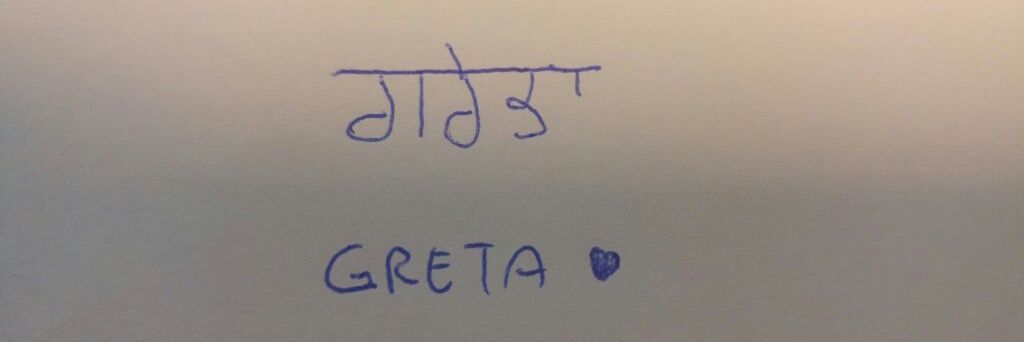 ਗਰੇਤਾ
GRETA ♥